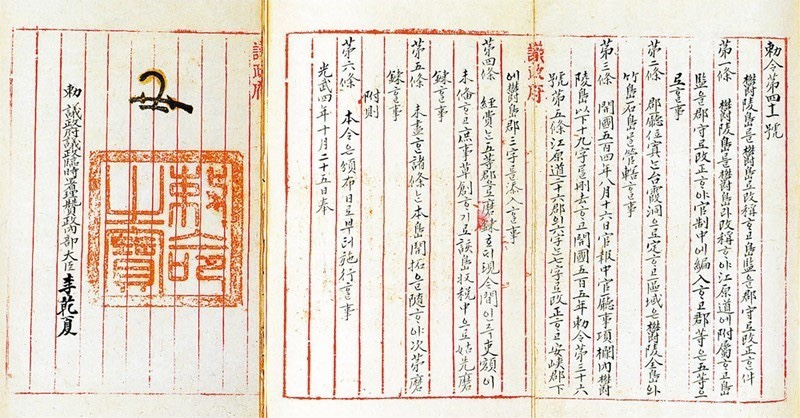 勅令第四十一號
鬱陵島를鬱島로改稱ᄒᆞ고島監을郡守로改正ᄒᆞᆫ件
第一條 鬱陵島를鬱島라改稱ᄒᆞ야江原道에附屬ᄒᆞ고島
監을郡守로改正ᄒᆞ야官制中에編入ᄒᆞ고郡等은五等으
로ᄒᆞᆯ事
第二條 郡廳位寘는台霞洞으로定ᄒᆞ고區域은鬱陵全島와
竹島石島를管轄ᄒᆞᆯ事
第三條 開國五百四年八月十六日官報中官廳事項欄內鬱
陵島以下十九字를刪去ᄒᆞ고開國五百五年勅令第三十六
號第五條江原道二十六郡의六字는七字로改正ᄒᆞ고安峽郡下
議政府
에鬱島郡三字를添入ᄒᆞᆯ事
第四條 經費는五等郡으로磨鍊호ᄃᆡ現今間인즉吏額이
未備ᄒᆞ고庶事草創ᄒᆞ기로該島收稅中으로姑先磨
鍊ᄒᆞᆯ事
第五條 未盡ᄒᆞᆫ諸條는本島開拓을隨ᄒᆞ야次第磨
鍊ᄒᆞᆯ事
附則
第六條 本令은頒布日로부터施行ᄒᆞᆯ事
光武四年十月二十五日奉
議政府
勅命之寶
勅 議政府議政臨時署理贊政內部大臣李乾夏